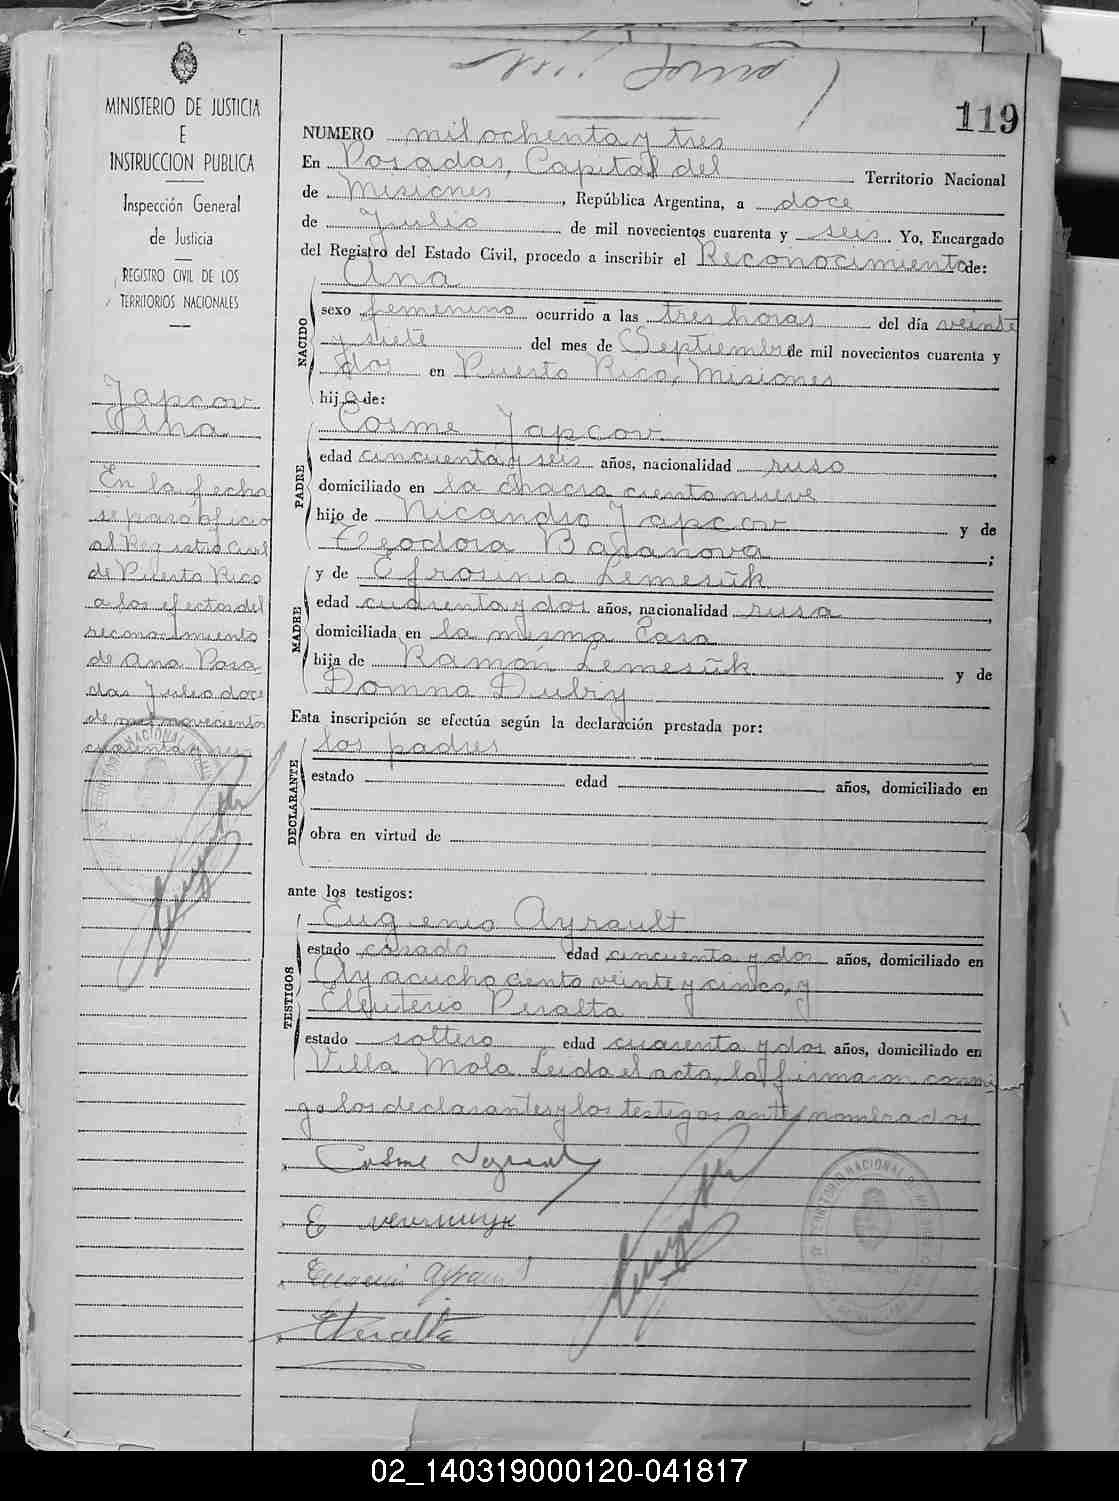 119
MINISTERIO DE JUSTICIA
E
INSTRUCCION PUBLICA
Inspección General
de Justicia
REGISTRO CIVIL DE LOS
TERRITORIOS NACIONALES
Japcov
Ana
En la fecha
se pasó oficio
al Registro Civil
de Puerto Rico
a los efectos del
reconocimiento
de Ana Posa-
das Julio doce
de mil novecientos
cuarenta y seis
NUMERO mil ochenta y tres
En Posadas, Capital del Territorio Nacional
de Misiones, República Argentina, a doce
de Julio de mil novecientos cuarenta y seis. Yo, Encargado
del Registro del Estado Civil, procedo a inscribir el Reconocimiento de:
NACIDO
Ana
sexo femenino ocurrido a las tres horas del día veinte
y siete del mes de Septiembre de mil novecientos cuarenta y
dos en Puerto Rico, Misiones
hija de:
PADRE
Cosme Japcov
edad cincuenta y seis años, nacionalidad ruso
domiciliado en la chacra ciento nueve
hijo de Nicandro Japcov y de
Teodora Bazanova;
MADRE
y de Efrosinia Lemesük
edad cuarenta y dos años, nacionalidad rusa,
domiciliada en la misma Casa
hija de Ramón Lemesük y de
Domna Dubiy
Esta inscripción se efectúa según la declaración prestada por:
DECLARANTE
los padres
estado edad años, domiciliado en
obra en virtud de
ante los testigos:
TESTIGOS
Eugenio Ayrault
estado casado edad cincuenta y dos años, domiciliado en
Ayacucho ciento veinte y cinco, y
Eleuterio Peralta
estado soltero edad cuarenta y dos años, domiciliado en
Villa Mola Leida el acta, la firmaron conmi
go los declarantes y los testigos ante nombrados
Cosme
E
Eugenio Ayrault
EPeralta
02_140319000120-041817